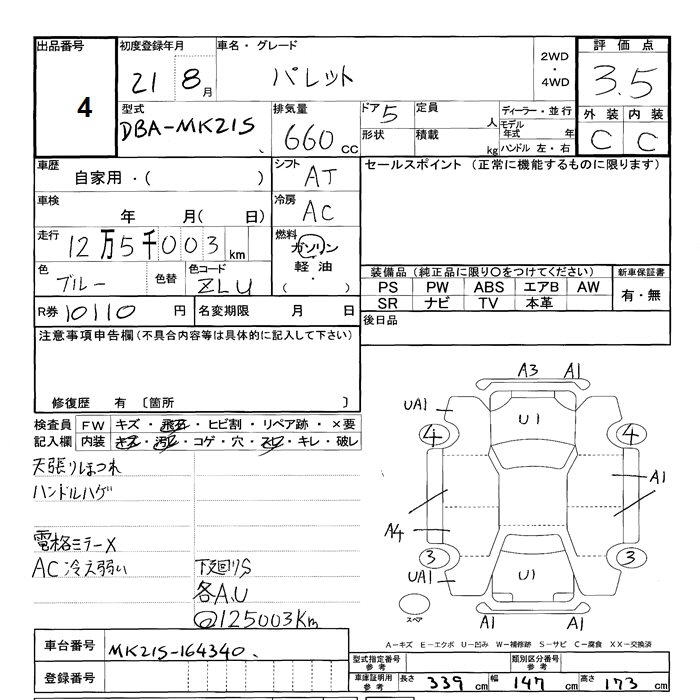 出品番号 初度登録年月 車名・グレード 評価点
4 21 8月 パレット 2WD・4WD 3.5
型式 DBA-MK21S 排気量 660cc ドア 5 定員 人 ディーラー・並行 外装 内装
形状 積載 kg モデル年式 年 C C
ハンドル 左・右
車歴 自家用・( ) シフト AT セールスポイント(正常に機能するものに限ります)
車検 年 月( 日) 冷房 AC
走行 12万5千003km 燃料 ガソリン
軽油
( ・ )
色 ブルー 色替 色コード ZLU 装備品(純正品に限り○をつけてください) 新車保証書
PS PW ABS エアB AW 有・無
SR ナビ TV 本革
R券 10110円 名変期限 月 日 後日品
注意事項申告欄(不具合内容等は具体的に記入して下さい)
修復歴 有 〔箇所 〕
検査員記入欄 FW キズ・飛石・ヒビ割・リペア跡・×要
内装 キズ・汚レ・コゲ・穴・スレ・キレ・破レ
天張りほつれ
ハンドルハゲ
電格ミラーX
AC冷え弱い 下廻りS
各A,U
@125003Km
A3 A1
UA1 U1
4 4
A1
A4
3 3
UA1 U1
スペア A1 A1
A-キズ E-エクボ U-凹み W-補修跡 S-サビ C-腐食 XX-交換済
車台番号 MK21S-164340
登録番号
型式指定番号 参考 類別区分番号 参考
車庫証明用 参考 長さ 339cm 幅 147cm 高さ 173cm